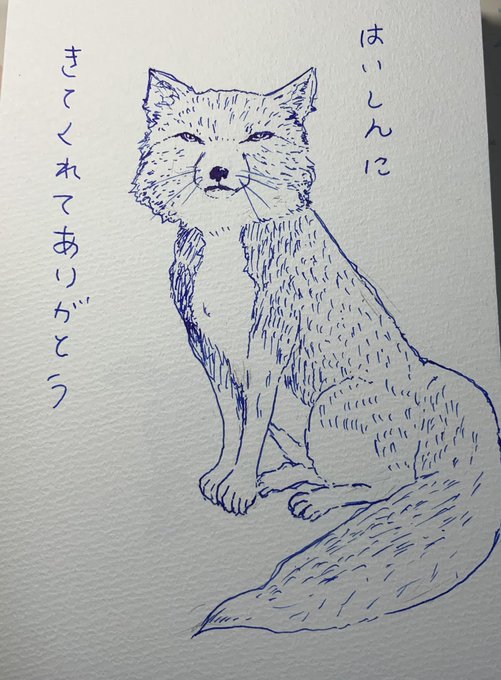 はいしんに
きてくれてありがとう